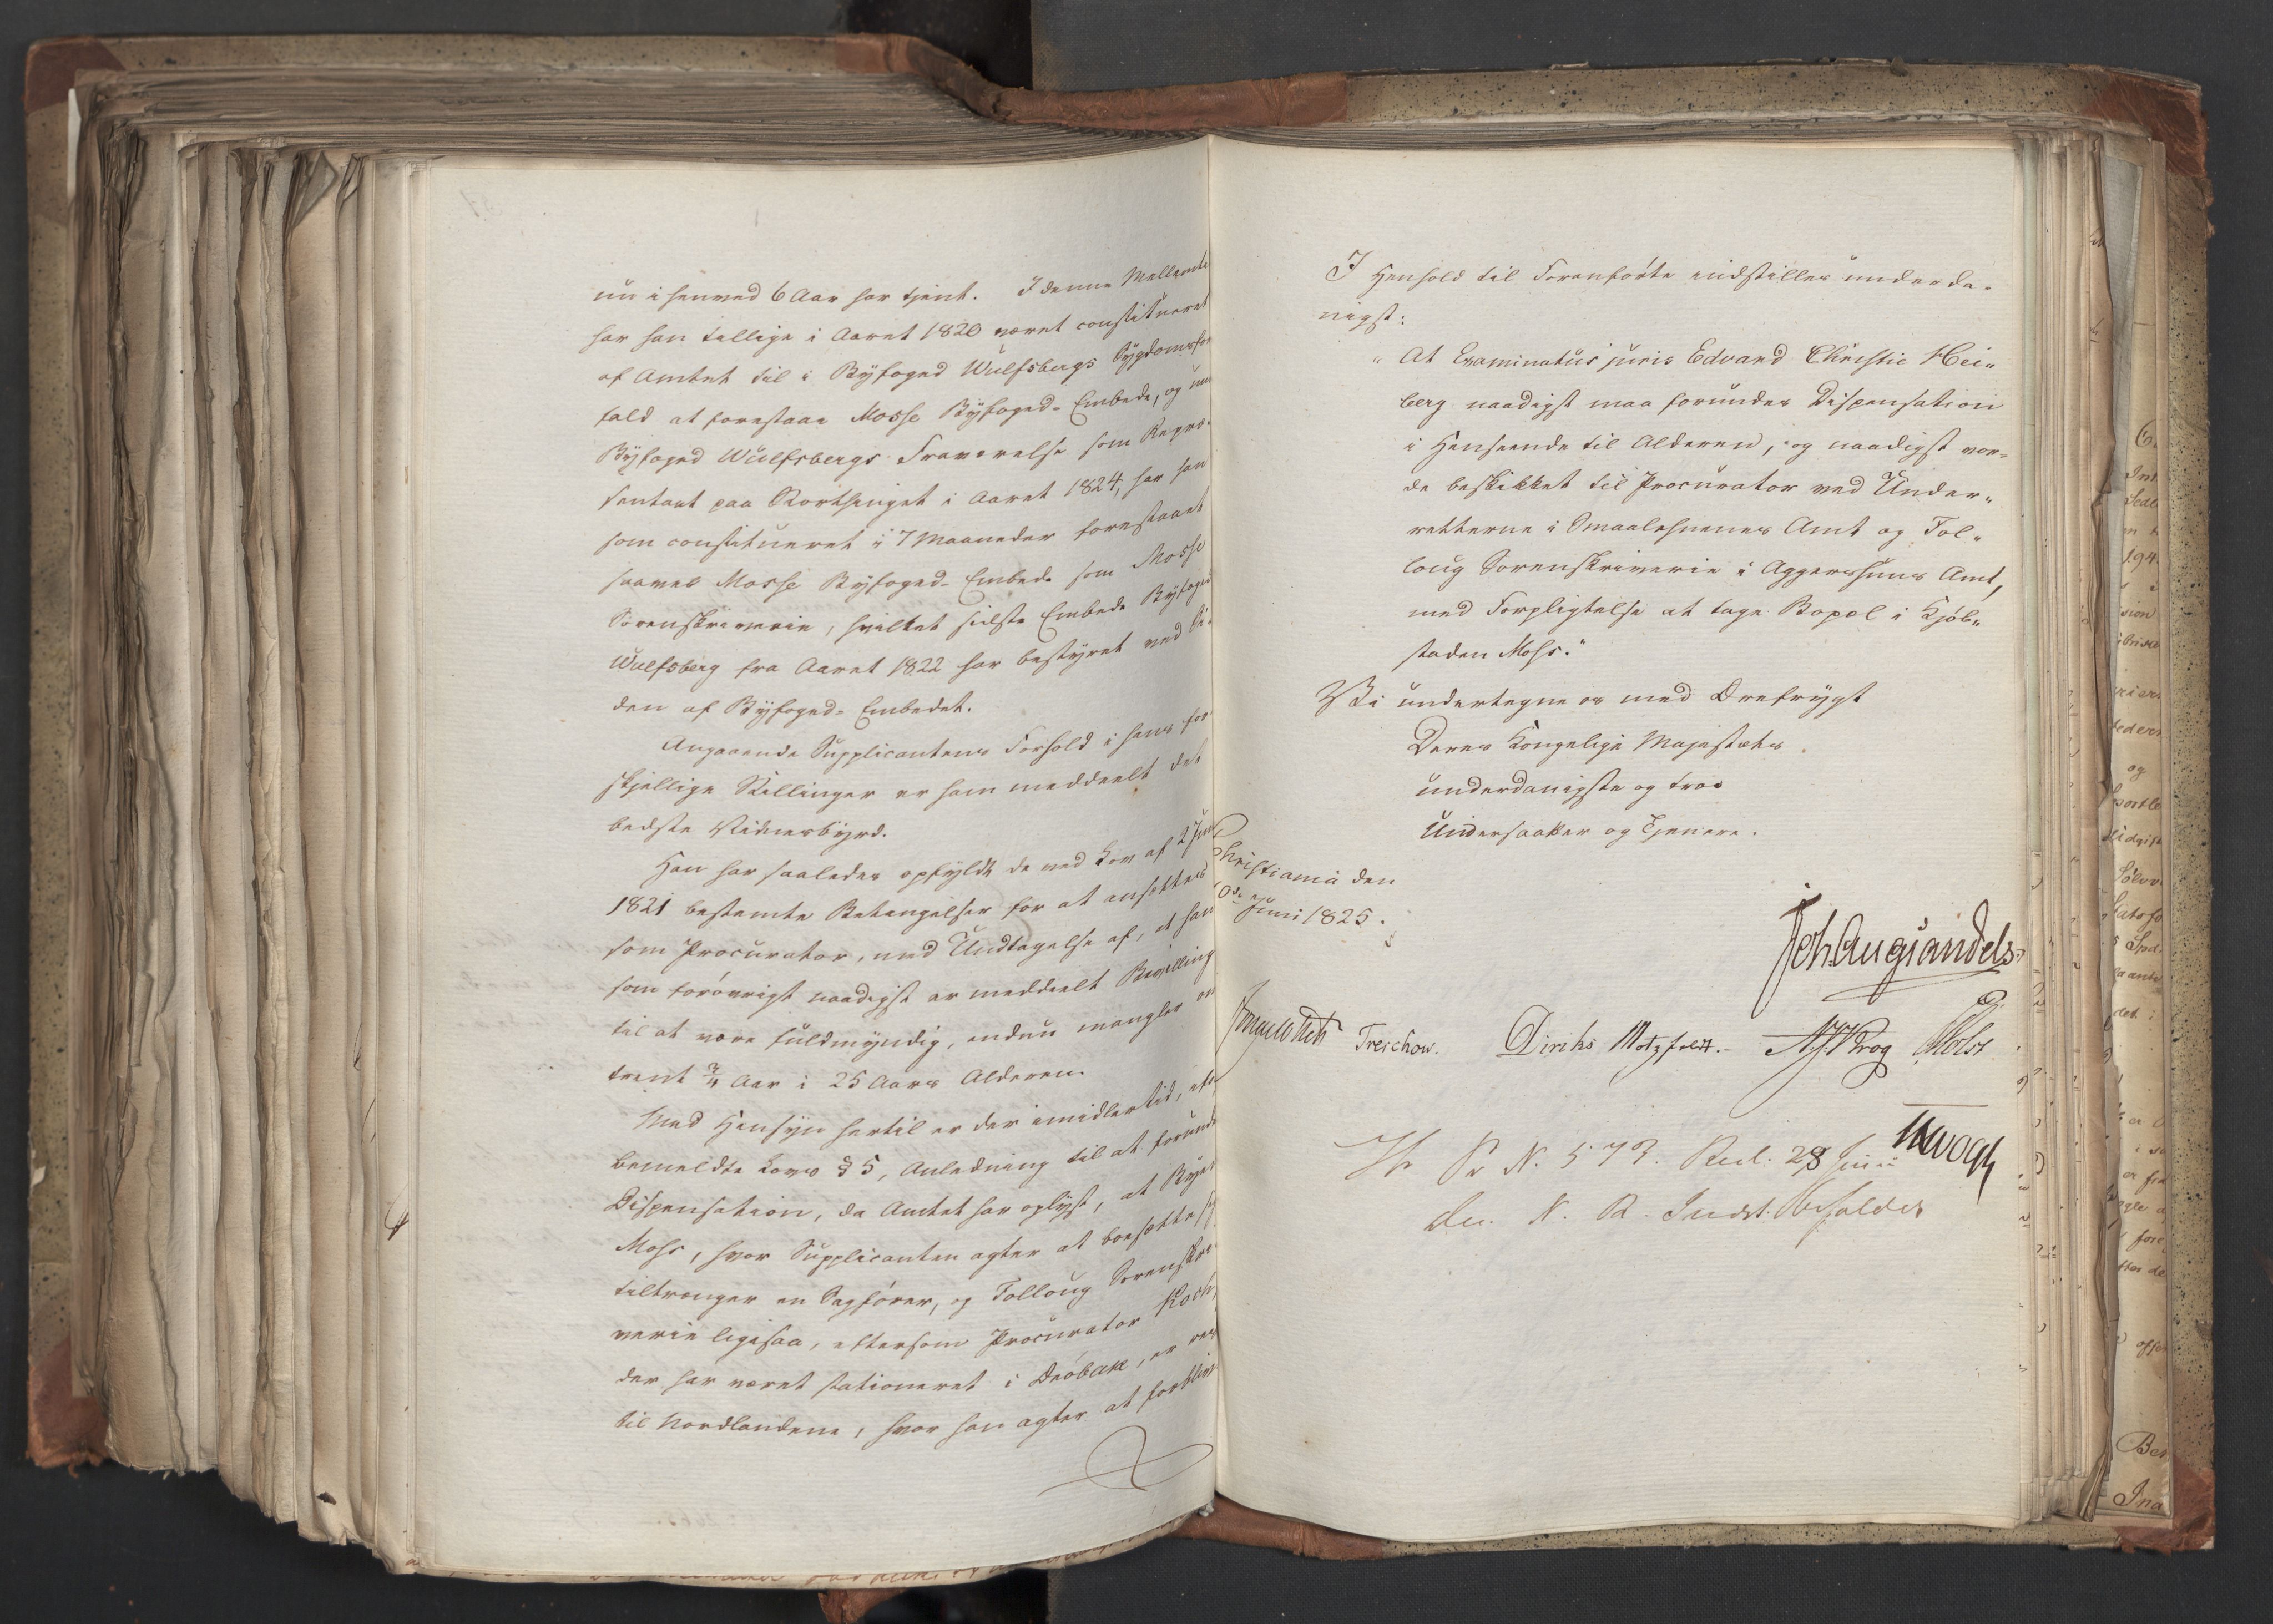 nu i henved 6 Aar har tjent. I denne Mellemti
har han tillige i Aaret 1820 været constitueret
af Amtet til i Byfoged Wulfsbergs Sygdomsfor
fald at forestaae Mosse Byfoged-Embede, og un
Byfoged Wulfsbergs Fraværelse som Repræ-
sentant paa Storthinget i Aaret 1824, har han
som constitueret i 7 Maaneder forestaaet
saavel Mosse Byfoged-Embede som Mosse
Sorenskriverie, hvilket sidste Embede Byfoged
Wulfsberg fra Aaret 1822 har bestyret ved Si-
den af Byfoged-Embedet.
Angaaende Supplicantens Forhold i hans for
skjellige Stillinger er ham meddeelt det
bedste Vidnesbyrd.
Han har saaledes opfyldt de ved Lov af 2 Jun
1821 bestemte Betingelser for at ansættes
som Procurator, med Undtagelse af, at han
som forøvrigt naadigst er meddeelt Bevilling
til at være fuldmyndig, endnu mangler om
trent 3/4 Aar i 25 Aars Alderen.
Med Hensyn hertil er der imidlertid, efter
bemeldte Lovs § 5, Anledning til at forunde
Dispensation, da Amtet har oplyst, at Byen
Moss, hvor Supplicanten agter at bosætte sig
tiltrænger en Sagfører, og Folloug Sorenskri
verie ligesaa, eftersom Procurator Koch,
der har været stationeret i Drøbak, er reist
til Nordlandene, hvor han agter at forblive
I Henhold til Foranførte indstilles underda-
nigst:
"At Examinatus juris Edvard Christie Hei"
berg naadigst maa forundes Dispensation
i Henseende til Alderen, og naadigst vor-
de beskikket til Procurator ved Under"
retterne i Smaalehnenes Amt og Fol"
loug Sorenskriverie i Aggershuus Amt,
med Forpligtelse at tage Bopæl i Kjøb"
staden Moss."
Vi undertegne os med Ærefrygt
Deres Kongelige Majestæts
underdanigste og troe
Undersaatter og Tjenere.
Christiania den
10de Juni 1825.
Joh. Aug. Sandels
Treschow. Diriks Motzfeldt. N. J. Krog Holst
JHVogt
No. 573. Red. 28 Juni
N. R. Indst. bifaldes